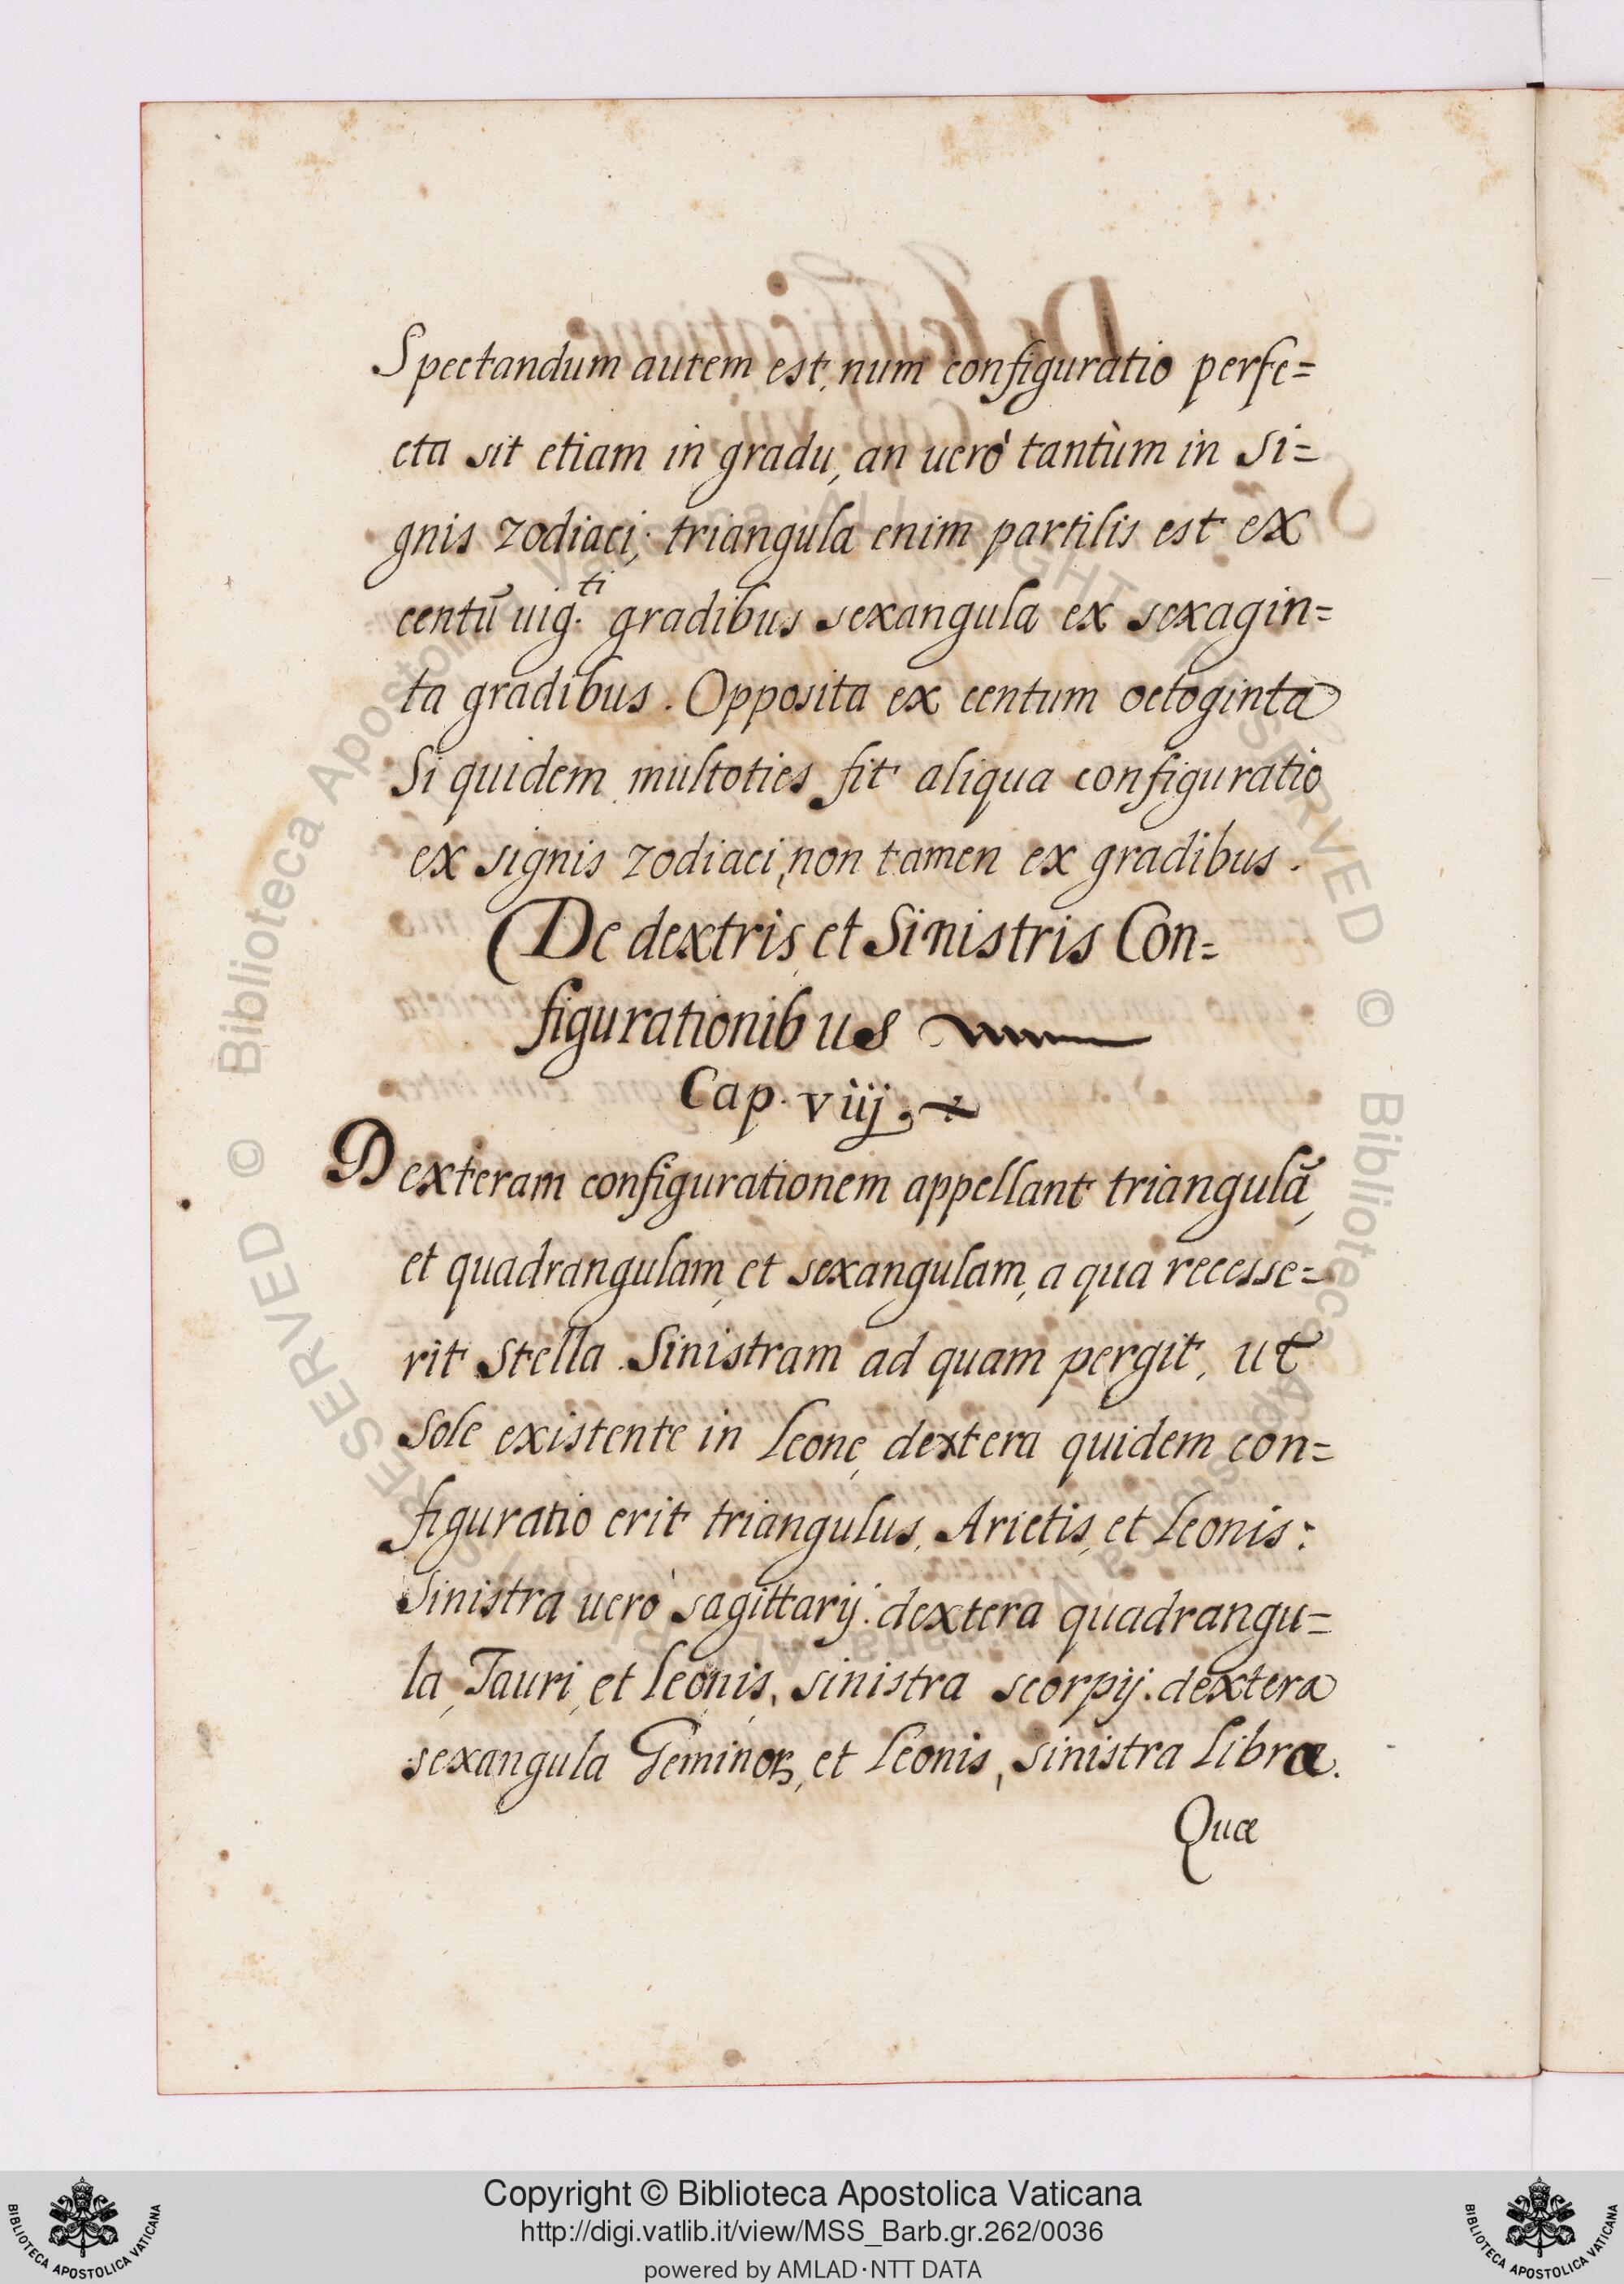 Spectandum autem est, num configuratio perfe=
cta sit etiam in gradu, an uerò tantùm in si=
gnis zodiaci; triangula enim partilis est ex
centũ uig.ti gradibus sexangula ex sexagin=
ta gradibus. Opposita ex centum octoginta
Si quidem multoties fit aliqua configuratio
ex signis zodiaci, non tamen ex gradibus.
De dextris, et Sinistris Con=
figurationibus
Cap. viij.
Dexteram configurationem appellant triangulã,
et quadrangulam, et sexangulam, a qua recesse=
rit Stella. Sinistram ad quam pergit, ut
Sole existente in Leone, dextera quidem con=
figuratio erit triangulus, Arietis, et Leonis:
Sinistra uerò sagittarij. dextera quadrangu=
la, Tauri, et Leonis, sinistra scorpij. dextera
sexangula Geminoꝝ, et Leonis, sinistra Libræ.
Quæ
Copyright © Biblioteca Apostolica Vaticana
http://digi.vatlib.it/view/MSS_Barb.gr.262/0036
powered by AMLAD·NTT DATA
BIBLIOTECA APOSTOLICA VATICANA
BIBLIOTECA APOSTOLICA VATICANA